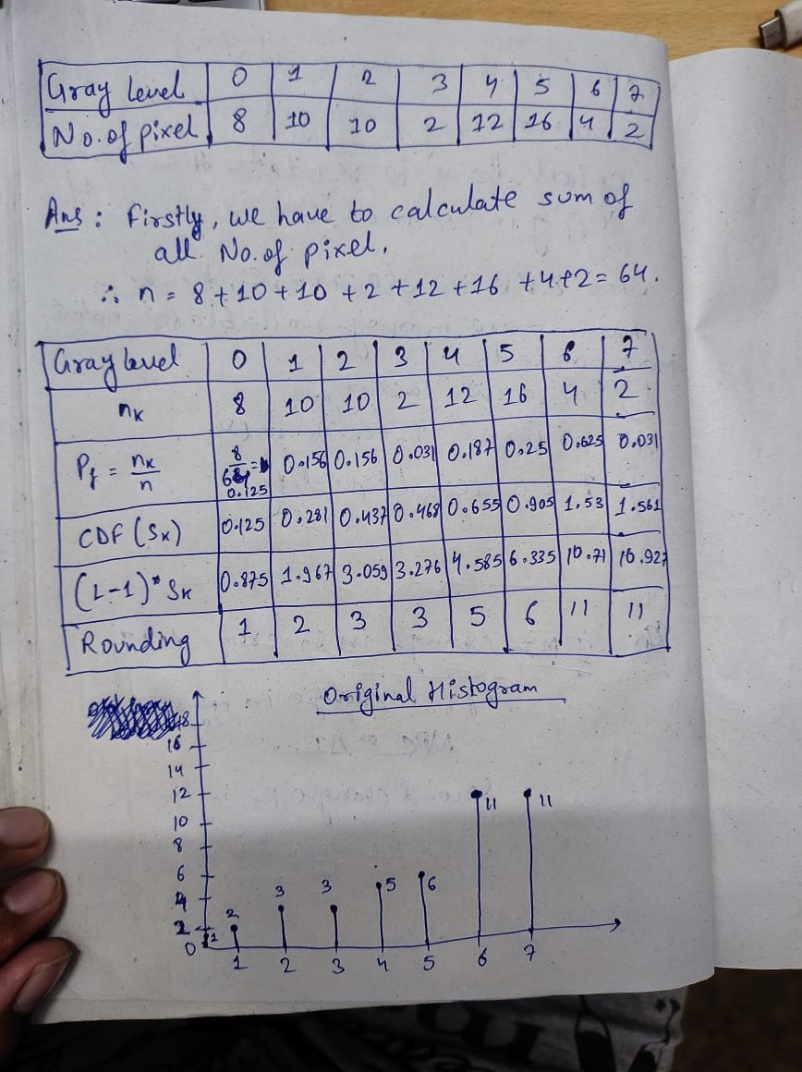 Gray level 0 1 2 3 4 5 6 7
No. of pixel 8 10 10 2 12 16 4 2
Ans : Firstly, we have to calculate sum of
all No. of pixel.
∴ n = 8 + 10 + 10 + 2 + 12 + 16 + 4 + 2 = 64.
Gray level 0 1 2 3 4 5 6 7
nk 8 10 10 2 12 16 4 2
Pf = nk/n 8/64 = 0.125 0.156 0.156 0.031 0.187 0.25 0.625 0.031
CDF (Sk) 0.125 0.281 0.437 0.468 0.655 0.905 1.53 1.561
(L-1)* Sk 0.875 1.967 3.059 3.276 4.585 6.335 10.71 10.927
Rounding 1 2 3 3 5 6 11 11
Original Histogram
18
16
14
12 11 11
10
8
6 5 6
4 3 3
2 2
0 1
1 2 3 4 5 6 7